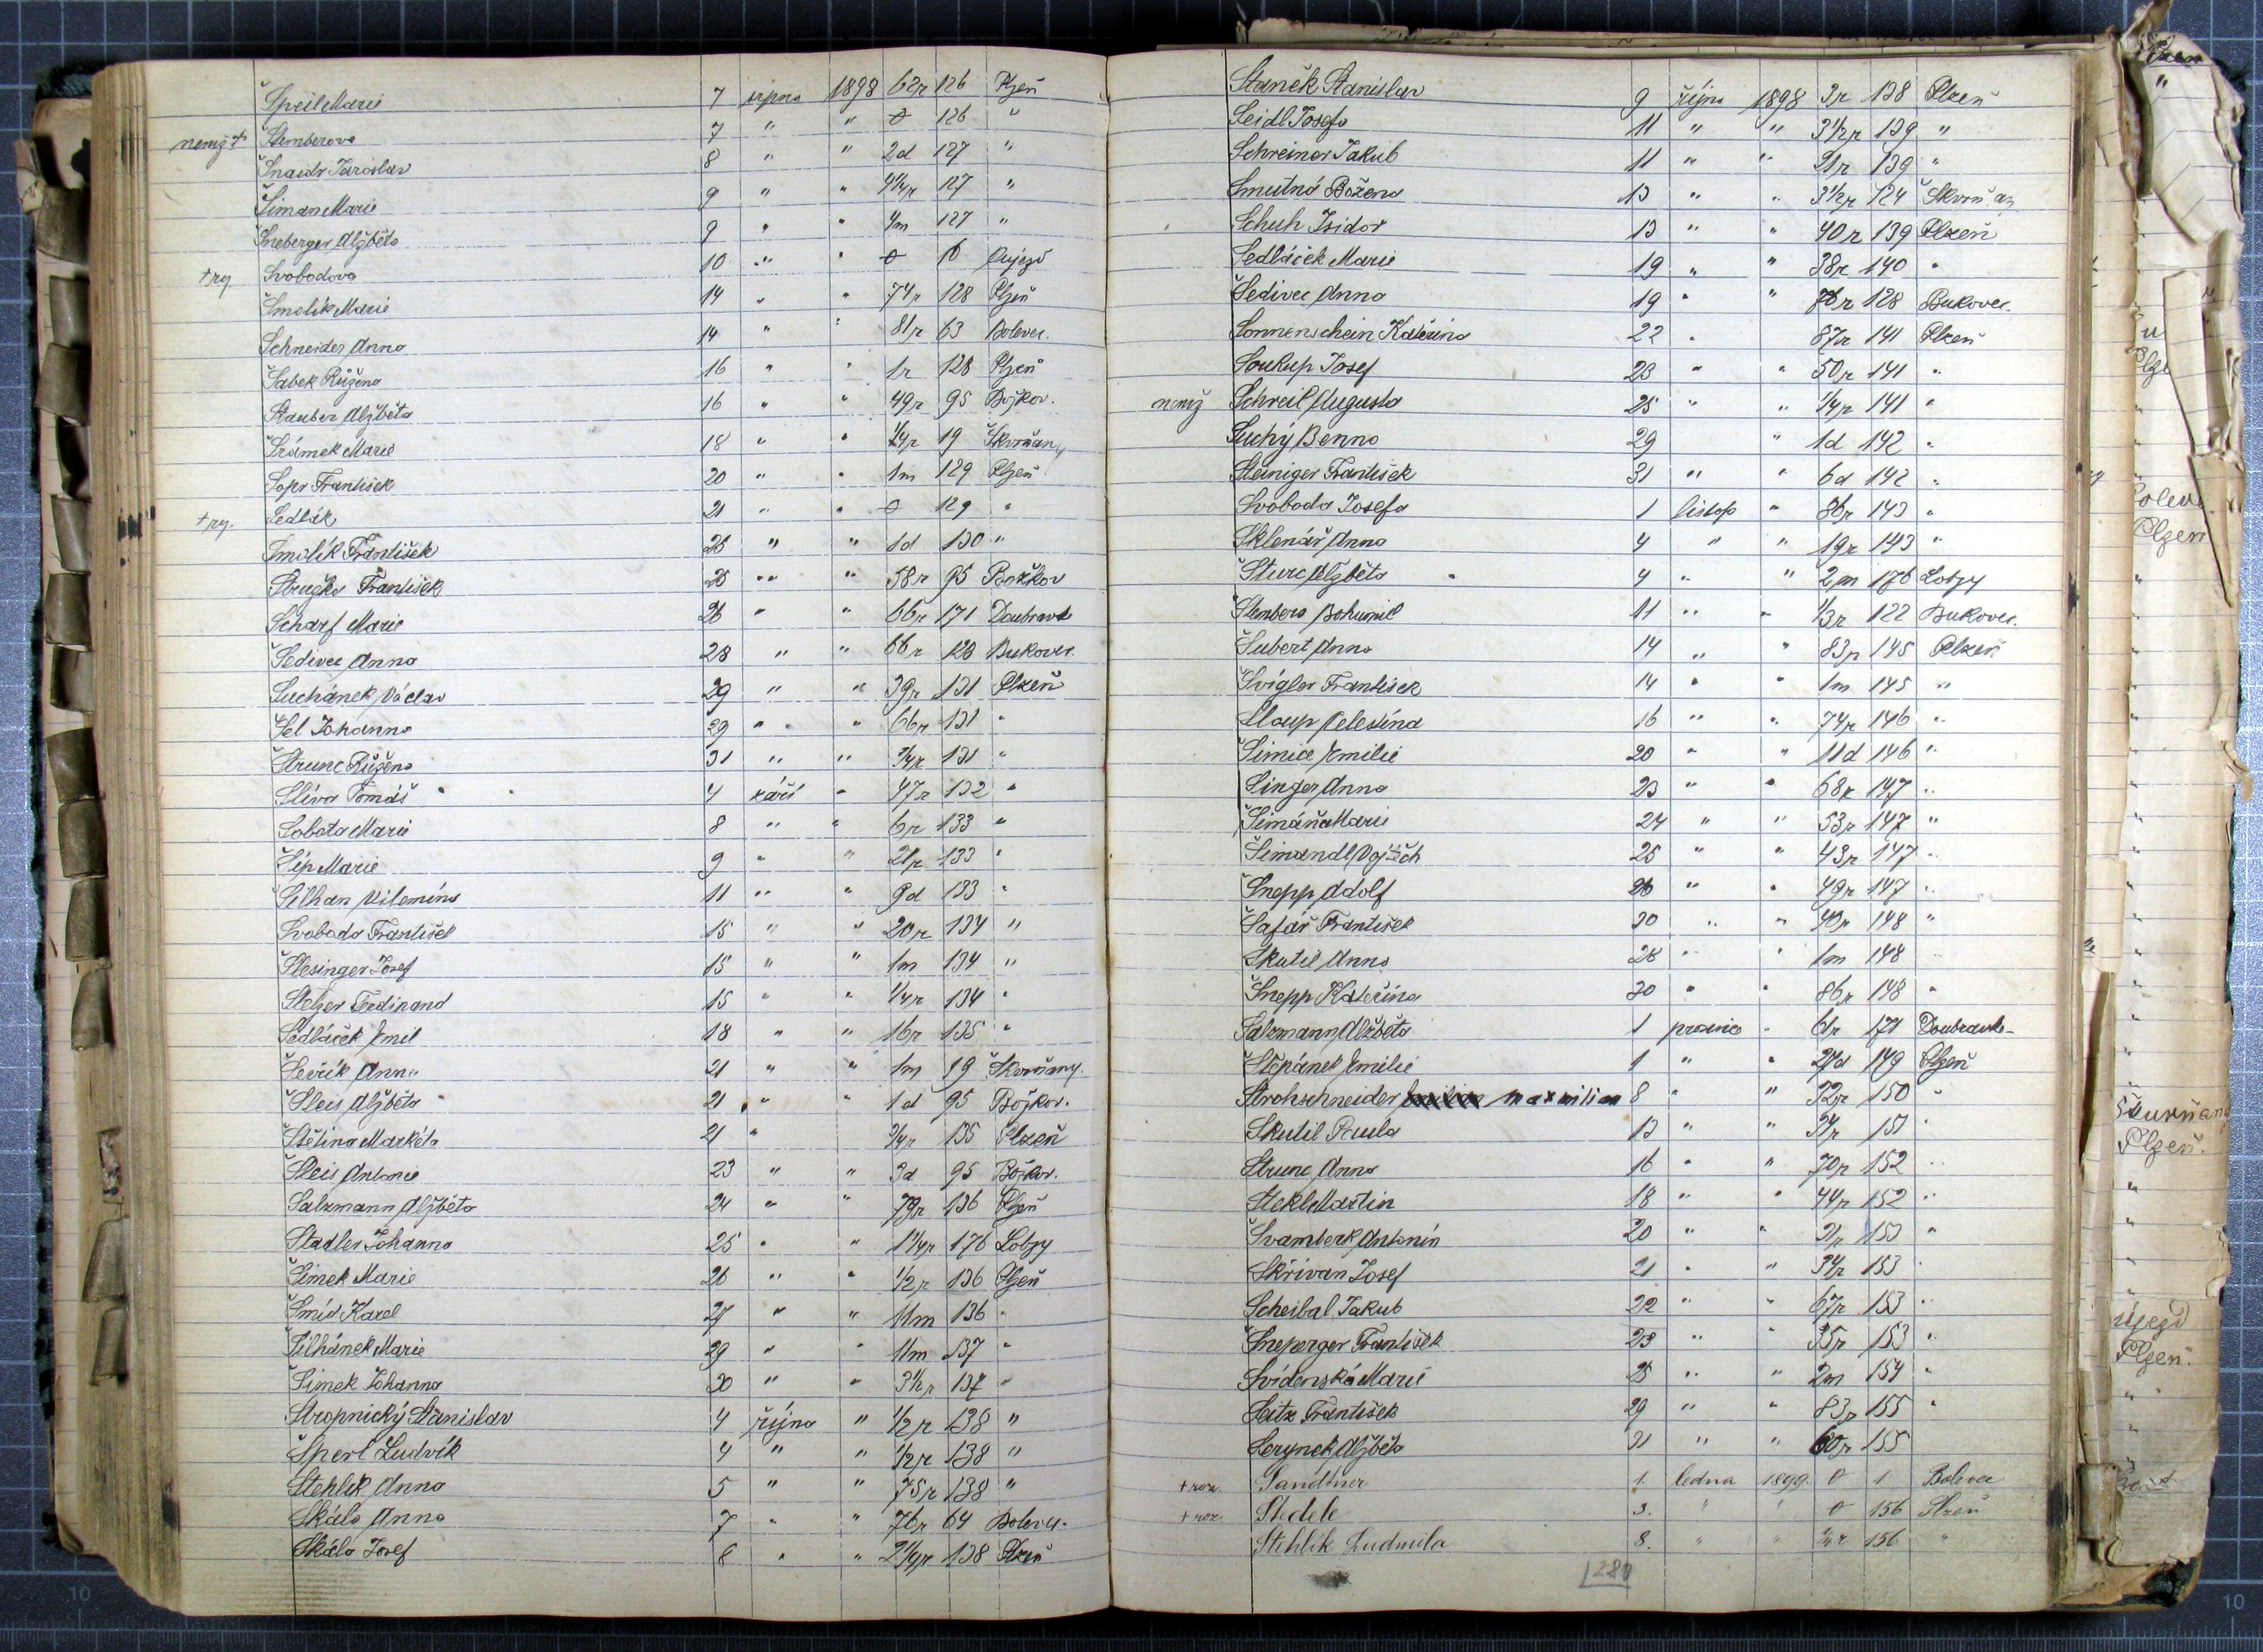 Špeil Marie 7 srpna 1898 62r 126 Plzeň
nemž + Štemberova 7 " " 0 126 "
Šnaidr Jaroslav 8 " " 2d 127 "
Šiman Marie 9 " " 4 1/4r 127 "
Šneberger Alžběta 9 " " 4m 127 "
+ rz Svobodova 10 " " 0 6 Oujezd
Smolík Marie 14 " " 74r 128 Plzeň
Schneider Anna 14 " " 81r 63 Bolevec.
Šabek Růžena 16 " " 1r 128 Plzeň
Stauber Alžběta 16 " " 49r 95 Božkov.
Šrámek Marie 18 " " 1/4r 19 Škvrňany
Šopr František 20 " " 1m 129 Plzeň
+ rz. Sedlák 21 " " 0 129 "
Smolík František 26 " " 1d 130 "
Stružka František 25 " " 58r 95 Božkov
Scharf Marie 26 " " 66r 171 Doubravk
Šedivec Anna 28 " " 66r 128 Bukovec.
Suchánek Václav 29 " " 39r 131 Plzeň
Šel Johanna 29 " " 66r 131 "
Štrunc Růžena 31 " " 3/4r 131 "
Slíva Tomáš 4 září " 47r 132 "
Sobota Marie 8 " " 6r 133 "
Šíp Marie 9 " " 21r 133 "
Šilhan Vilemína 11 " " 9d 133 "
Svoboda František 15 " " 20r 134 "
Šlesinger Josef 15 " " 1m 134 "
Stelzer Ferdinand 15 " " 1/4r 134 "
Sedláček Emil 18 " " 16r 135 "
Ševčík Anna 21 " " 1m 19 Škvrňany.
Šleis Alžběta 21 " " 1d 95 Božkov.
Štětina Markéta 21 " 3/4r 135 Plzeň
Šleis Antonie 23 " " 3d 95 Božkov.
Salzmann Alžběta 24 " " 79r 136 Plzeň
Stadler Johanna 25 " " 1 1/4r 176 Lobzy
Šimek Marie 26 " " 1/2r 136 Plzeň
Šmíd Karel 27 " " 11m 136 "
Šilhánek Marie 29 " " 11m 137 "
Šimek Johanna 30 " " 3 1/2r 137 "
Stropnický Stanislav 4 října " 1/2r 138 "
Šperl Ludvík 4 " " 1/2r 138 "
Stehlík Anna 5 " " 75r 138 "
Skála Anna 7 " " 76r 64 Bolevec.
Skála Josef 8 " " 2 1/4r 138 Plzeň
Staněk Stanislav 9 října 1898 3r 138 Plzeň
Seidl Josefa 11 " " 3 1/2r 139 "
Schreiner Jakub 11 " " 21r 139 "
Smutná Božena 13 " " 3 1/2r 124 Škvrňan
Schuh Isidor 13 " " 40r 139 Plzeň
Sedláček Marie 19 " " 38r 140 "
Šedivec Anna 19 " " 76r 128 Bukovec.
Sonnenschein Kateřina 22 " 87r 141 Plzeň
Soukup Josef 23 " " 50r 141 "
nemž Schreil Augusta 25 " " 1/4r 141 "
Suchý Benno 29 " 1d 142 "
Steiniger František 31 " " 6d 142 "
Svoboda Josefa 1 listop " 86r 143 "
Sklenář Anna 4 " " 19r 143 "
Šturc Alžběta 4 " " 2m 176 Lobzy
Štembera Bohumil 11 " " 1/3r 122 Bukovec.
Šubert Anna 14 " " 83r 145 Plzeň
Švígler František 14 " " 1m 145 "
Sloup Celestina 16 " " 74r 146 "
Šimice Emilie 20 " " 11d 146 "
Singer Anna 23 " " 68r 147 "
Šimáňa Marie 24 " " 53r 147 "
Šimandl Vojtěch 25 " " 43r 147 "
Šnepp Adolf 26 " " 49r 147 "
Šafář František 30 " " 40r 148 "
Skutil Anna 28 " " 1m 148
Šnepp Kateřina 30 " " 86r 148 "
Salzmann Alžběta 1 prosince " 61r 171 Doubravk-
Štěpánek Emilie 1 " " 21d 149 Plzeň
Strohschneider maxmilian 8 " " 32r 150 "
Skutil Paula 13 " " 151 "
Štrunc Anna 16 " " 70r 152 "
Stekl Martin 18 " " 44r 152 "
Švamberk Antonín 20 " " 153 "
Skřivan Josef 21 " " 34r 153 "
Scheibal Jakub 22 " " 67r 153 "
Šneperger František 23 " " 35r 153 "
Svidenská Marie 25 " " 2m 154 "
Seitz František 29 " " 83r 155 "
Šerynek Alžběta 31 " " 60r 155
+ roz. Sandtner 1. ledna 1899. 0 1 Bolevec
+ roz. Stedele 3. " " 0 156 Plzeň
Stehlík Ludmila 8. " " 156 "
280
Plzeň
Škvrňany
Plzeň.
Újezd
Plzeň.
10
10